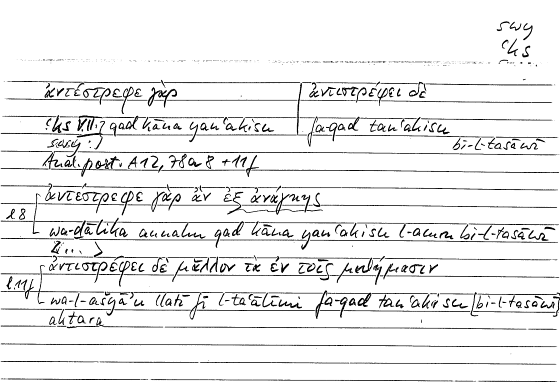 swy
ʿks
ἀντέστρεφε γὰρ
ἀντιστρέφει δὲ
ʿks VII: qad kāna yanʿakisu
fa-qad tanʿakisu
swy:
bi-l-tasāwī
Anal. post. A 12, 78 a 8 + 11 f
ἀντέστρεφε γὰρ ἂν ἐξ ἀνάγκης
a 8
wa-ḏālika annahu qad kāna yanʿakisu l-amru bi-l-tasāwī
ἀντιστρέφει δὲ μᾶλλον τὰ ἐν τοῖς μαθήμασιν
a 11 f
wa-l-ašyāʾu llatī fī l-taʿālīmi fa-qad tanʿakisu [bi-l-tasāwī]
akṯara